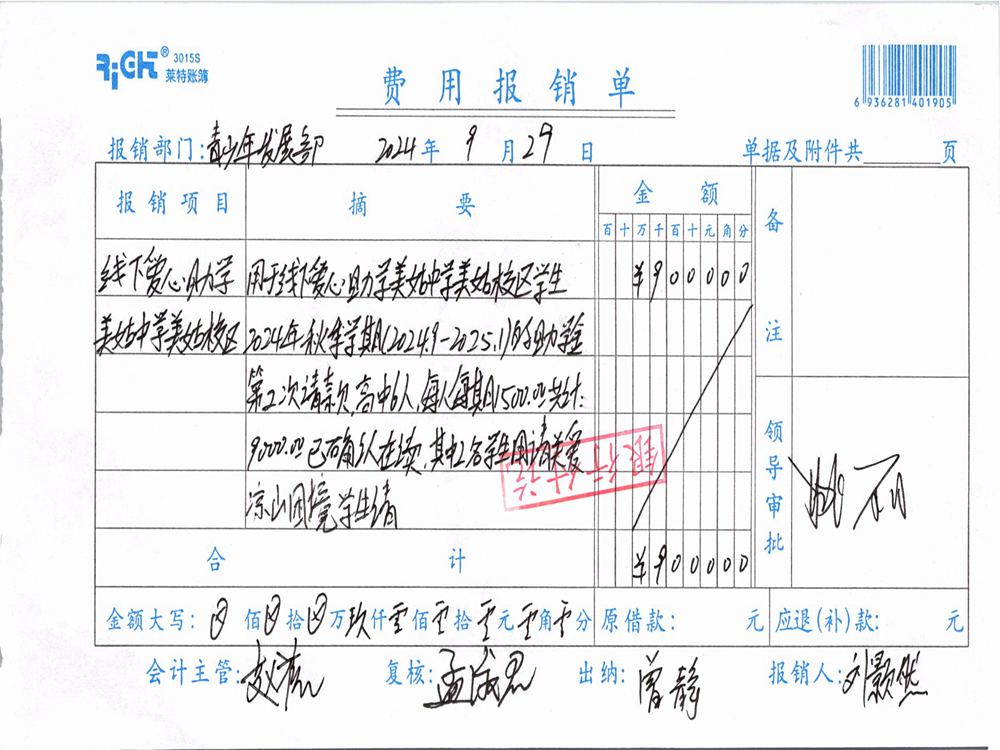 RiCH® 3015S
莱特账簿
费用报销单
6 936281 401905
报销部门:青少年发展部 2024年9月29日 单据及附件共 页
报销项目 摘要 金额 备注
百十万千百十元角分
线下爱心助学 用于线下爱心助学美姑中学美姑校区学生 ¥900000
美姑中学美姑校区 2024年秋季学期(2024.9-2025.1)的助学金
第2次请款,高中6人,每人每期1500.00共计:
9000.00已确认在读,其中2名学生用请关爱
凉山困境学生情
银行付讫
领导审批
合计 ¥900000
金额大写:⊗佰⊗拾⊗万玖仟零佰零拾零元零角零分 原借款: 元 应退(补)款: 元
会计主管: 复核:孟成思 出纳:曾静 报销人:刘颢然